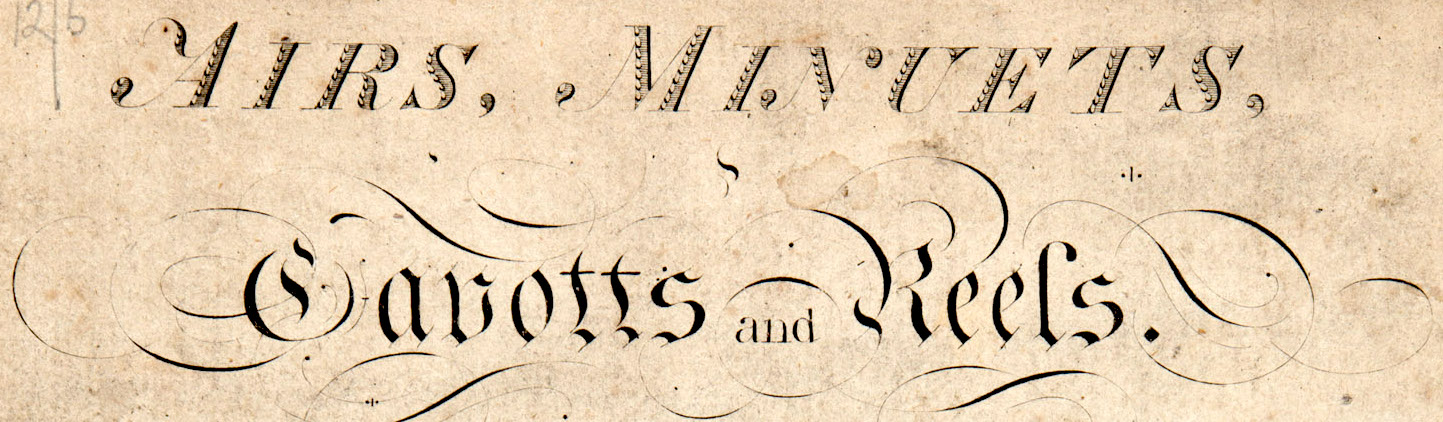 12/6
AIRS, MINUETS,
Gavotts and Reels.